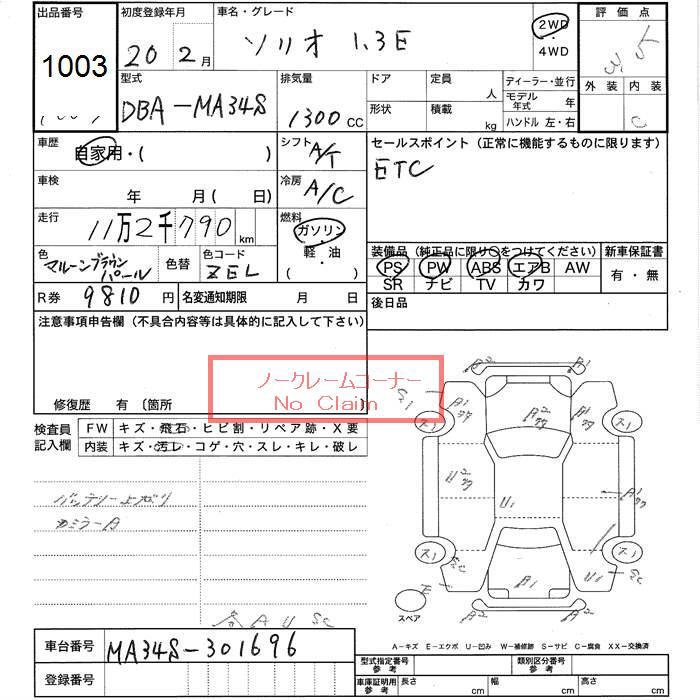 出品番号 初度登録年月 車名・グレード 評価点
1003 20 2月 ソリオ 1.3E 2WD・4WD 3.5
外装 内装
C
型式 排気量 ドア 定員 人 ディーラー・並行
DBA-MA34S 1300 CC 形状 積載 kg モデル年式 年
ハンドル 左・右
車歴 シフト セールスポイント (正常に機能するものに限ります)
自家用・( ) A/T ETC
車検 年 月(日) 冷房 A/C
走行 11万2千790 km 燃料 ガソリン・軽・油 ( )
色 マルーンブラウンパール 色替 色コード ZEL
装備品 (純正品に限り○をつけてください) 新車保証書
PS PW ABS エアB AW 有・無
SR ナビ TV カワ
R券 9810 円 名変通知期限 月 日 後日品
注意事項申告欄 (不具合内容等は具体的に記入して下さい)
ノークレームコーナー
No Claim
修復歴 有 〔箇所
検査員記入欄 FW キズ・飛石・ヒビ割・リペア跡・X要
内装 キズ・汚レ・コゲ・穴・スレ・キレ・破レ
バッテリー上ガリ
ミラーA
A2 A1
S1 A1 A2 A1
U2 A1
U1
A1 U1 S2
スペア
A U SC
A-キズ E-エクボ U-凹み W-補修跡 S-サビ C-腐食 XX-交換済
車台番号 MA34S-301696
登録番号
型式指定番号 参考 類別区分番号 参考
車庫証明用 参考 長さ cm 幅 cm 高さ cm